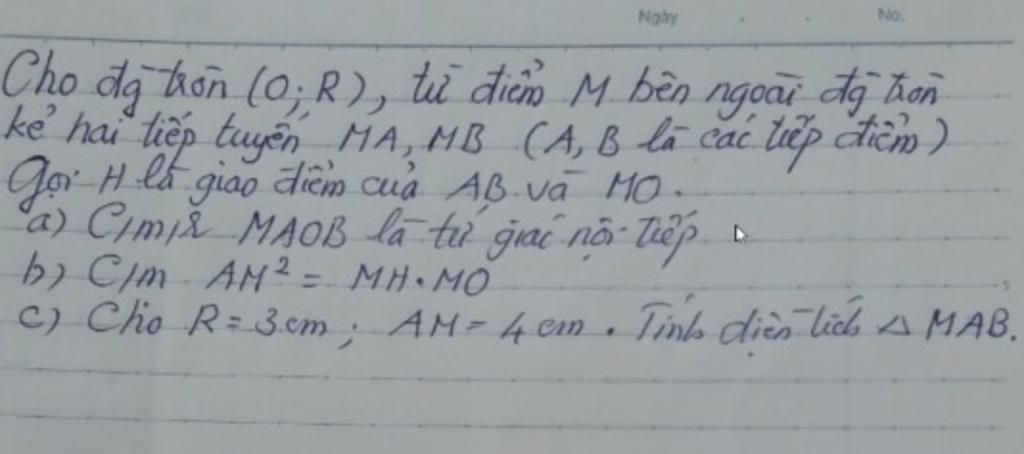 Ngày
No.
Cho đg tròn (O; R), từ điểm M bên ngoài đg tròn
kẻ hai tiếp tuyến MA, MB (A, B là các tiếp điểm)
Gọi H là giao điểm của AB và MO.
a) C/m/r MAOB là tứ giác nội tiếp
b) C/m AM² = MH.MO
c) Cho R = 3cm; AM = 4cm. Tính diện tích Δ MAB.